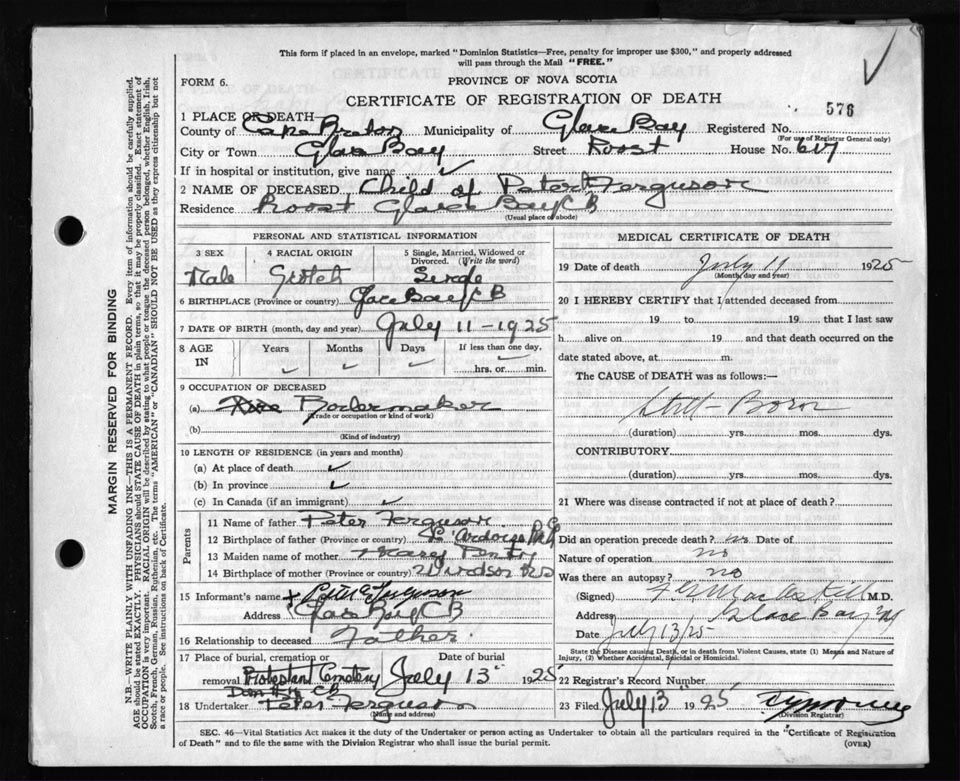 This form if placed in an envelope, marked "Dominion Statistics—Free, penalty for improper use $300," and properly addressed
will pass through the Mail "FREE."
FORM 6. PROVINCE OF NOVA SCOTIA
CERTIFICATE OF REGISTRATION OF DEATH
576
1 PLACE OF DEATH—
County of Cape Breton Municipality of Glace Bay Registered No.
(For use of Registrar General only)
City or Town Glace Bay Street Roost House No. 617
If in hospital or institution, give name ✓
2 NAME OF DECEASED Child of Peter Ferguson
Residence Roost Glace Bay C B
(Usual place of abode)
PERSONAL AND STATISTICAL INFORMATION
3 SEX 4 RACIAL ORIGIN 5 Single, Married, Widowed or Divorced. (Write the word)
Male Scotch Single
6 BIRTHPLACE (Province or country) Glace Bay C B
7 DATE OF BIRTH (month, day and year) July 11 - 1925
8 AGE IN Years Months Days If less than one day,
hrs. or min.
9 OCCUPATION OF DECEASED
(a) Boilermaker
(Trade or occupation or kind of work)
(b)
(Kind of industry)
10 LENGTH OF RESIDENCE (in years and months)
(a) At place of death ✓
(b) In province ✓
(c) In Canada (if an immigrant) ✓
Parents
11 Name of father Peter Ferguson
12 Birthplace of father (Province or country)
13 Maiden name of mother Mary
14 Birthplace of mother (Province or country) Windsor N S
15 Informant's name x Peter Ferguson
Address Glace Bay C B
16 Relationship to deceased Father
17 Place of burial, cremation or removal Date of burial
Protestant Cemetery July 13 1925
18 Undertaker Peter Ferguson
(Name and address)
MEDICAL CERTIFICATE OF DEATH
19 Date of death July 11 1925
(Month, day and year)
20 I HEREBY CERTIFY that I attended deceased from
19 to 19 that I last saw
h alive on 19 and that death occurred on the
date stated above, at m.
The CAUSE of DEATH was as follows:—
Still-Born
(duration) yrs. mos. dys.
CONTRIBUTORY
(duration) yrs. mos. dys.
21 Where was disease contracted if not at place of death?
Did an operation precede death? no Date of
Nature of operation no
Was there an autopsy? no
(Signed) M.D.
Address, Glace Bay
Date July 13/25
State the Disease causing Death, or in death from Violent Causes, state (1) Means and Nature of
Injury, (2) Whether Accidental, Suicidal or Homicidal.
22 Registrar's Record Number
23 Filed July 13 1925
(Division Registrar)
SEC. 46—Vital Statistics Act makes it the duty of the Undertaker or person acting as Undertaker to obtain all the particulars required in the "Certificate of Registration
of Death" and to file the same with the Division Registrar who shall issue the burial permit.
(OVER)
MARGIN RESERVED FOR BINDING
N.B.—WRITE PLAINLY WITH UNFADING INK—THIS IS A PERMANENT RECORD. Every item of information should be carefully supplied.
AGE should be stated EXACTLY. PHYSICIANS should STATE CAUSE OF DEATH in plain terms, so that it may be properly classified. Exact statement of
OCCUPATION is very important. RACIAL ORIGIN will be described by stating to what people or tongue the deceased person belonged, whether English, Irish,
Scotch, French, German, Russian, Ruthenian, etc. The terms "AMERICAN" or "CANADIAN" SHOULD NOT BE USED as they express citizenship but not
a race or people. See instructions on back of Certificate.